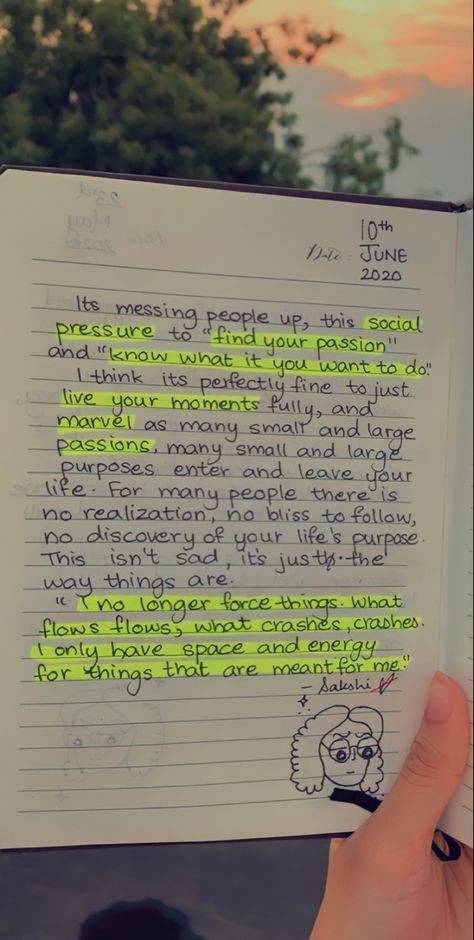 10th
Date: JUNE
2020
Its messing people up, this social
pressure to "find your passion"
and "know what it you want to do"
I think its perfectly fine to just
live your moments fully, and
marvel as many small and large
passions, many small and large
purposes enter and leave your
life. For many people there is
no realization, no bliss to follow,
no discovery of your life's purpose.
This isn't sad, it's just the
way things are.
"I no longer force things. What
flows flows, what crashes, crashes.
I only have space and energy
for things that are meant for me."
- Sakshi